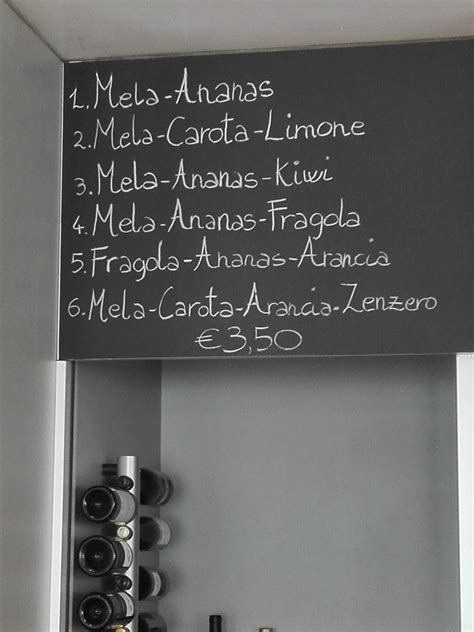 1. Mela-Ananas
2. Mela-Carota-Limone
3. Mela-Ananas-Kiwi
4. Mela-Ananas-Fragola
5. Fragola-Ananas-Arancia
6. Mela-Carota-Arancia-Zenzero
€3,50